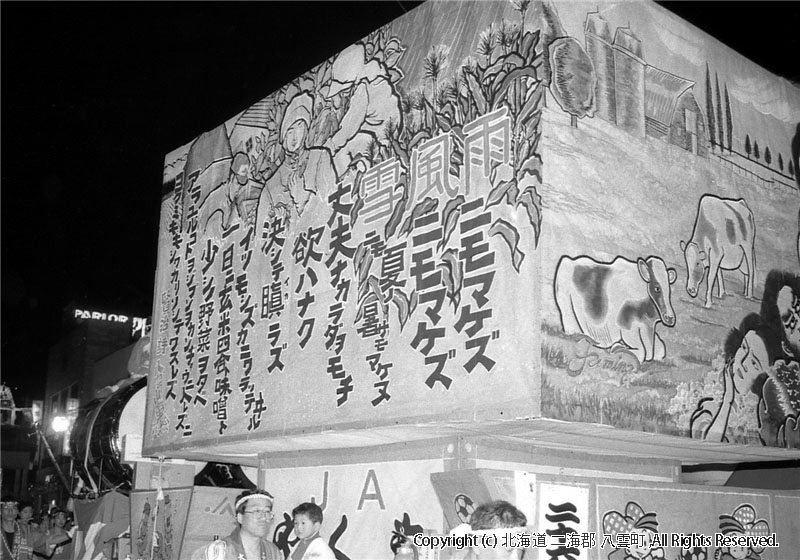 雨ニモマケズ
風ニモマケズ
雪ニモ夏ノ暑サニモマケヌ
丈夫ナカラダヲモチ
欲ハナク
決シテ瞋ラズ
イカ
イツモシズカニワラッテヰル
一日ニ玄米四合ト味噌ト
少シノ野菜ヲタベ
アラユルコトヲジブンヲカンジョウニ入レズニ
ヨクミキキシワカリソシテワスレズ
PARLOR
JA
Copyright (c) 北海道 二海郡 八雲町 All Rights Reserved.